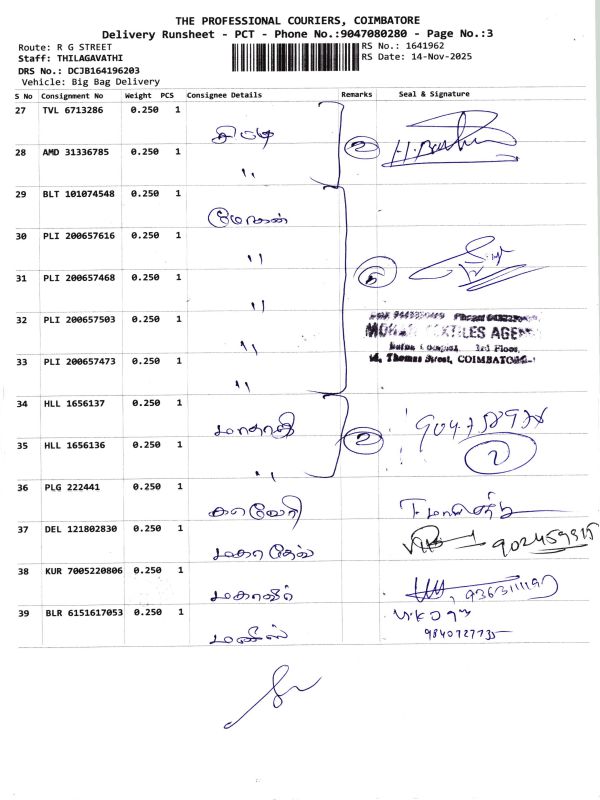 THE PROFESSIONAL COURIERS, COIMBATORE
Delivery Runsheet - PCT - Phone No.:9047080280 - Page No.:3
Route: R G STREET
RS No.: 1641962
Staff: THILAGAVATHI
RS Date: 14-Nov-2025
DRS No.: DCJB164196203
Vehicle: Big Bag Delivery
S No Consignment No Weight PCS Consignee Details Remarks Seal & Signature
27 TVL 6713286 0.250 1
28 AMD 31336785 0.250 1 " 2
29 BLT 101074548 0.250 1 மோகன்
30 PLI 200657616 0.250 1 "
31 PLI 200657468 0.250 1 " 5
32 PLI 200657503 0.250 1 "
TEXTILES AGEN
3rd Floor,
Thomas Street, COIMBATORE-1
33 PLI 200657473 0.250 1 "
34 HLL 1656137 0.250 1
35 HLL 1656136 0.250 1 " 2 2
36 PLG 222441 0.250 1 காவேரி
37 DEL 121802830 0.250 1
38 KUR 7005220806 0.250 1 மகாவீர்
39 BLR 6151617053 0.250 1